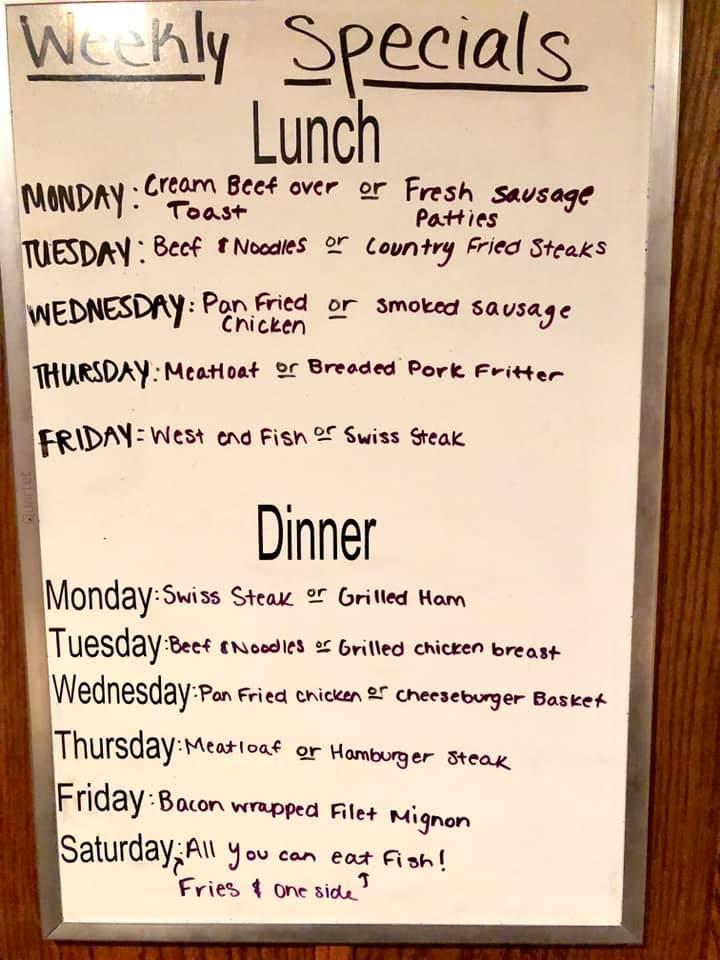 Weekly Specials
Lunch
MONDAY: Cream Beef over or Fresh Sausage
Toast Patties
TUESDAY: Beef & Noodles or Country Fried Steaks
WEDNESDAY: Pan Fried or smoked sausage
Chicken
THURSDAY: Meatloaf or Breaded Pork Fritter
FRIDAY: West end Fish or Swiss Steak
Quartet
Dinner
Monday: Swiss Steak or Grilled Ham
Tuesday: Beef & Noodles or Grilled chicken breast
Wednesday: Pan Fried chicken or cheeseburger Basket
Thursday: Meatloaf or Hamburger Steak
Friday: Bacon wrapped Filet Mignon
Saturday: All you can eat Fish!
Fries & one side